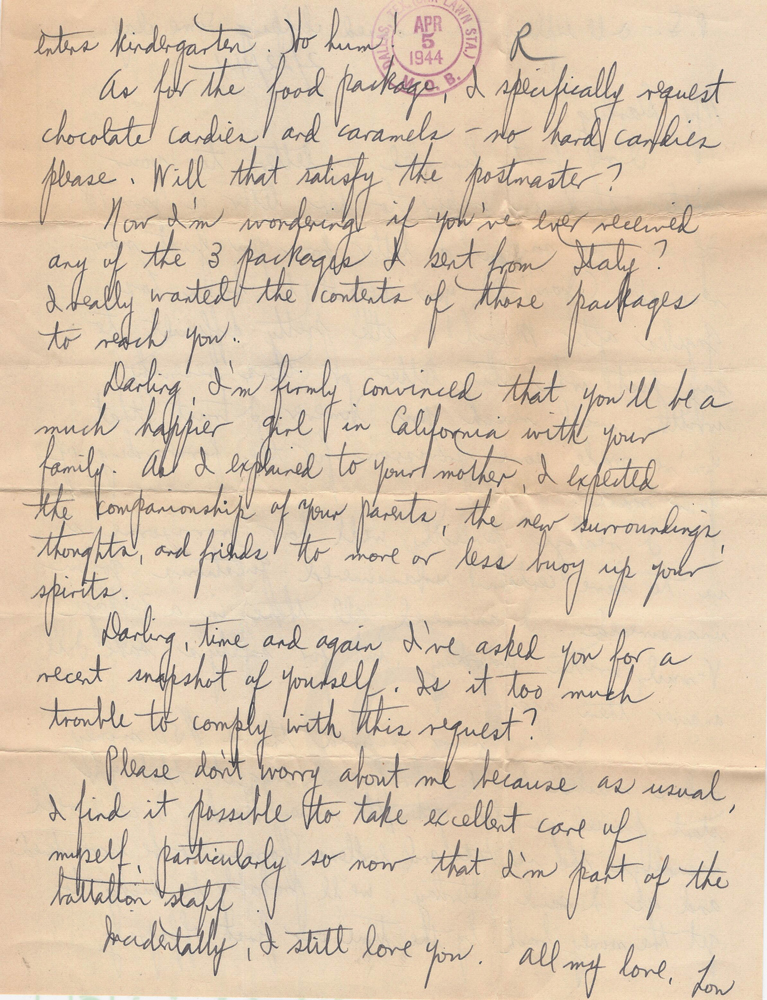 enters kindergarten. Ho hum!
DALLAS, TEX. LAWN STA.)
APR
5
1944
M. O. B.
R
As for the food package, I specifically request
chocolate candies and caramels - no hard candies
please. Will that satisfy the postmaster?
Now I'm wondering if you've ever received
any of the 3 packages I sent from Italy?
I really wanted the contents of those packages
to reach you.
Darling, I'm firmly convinced that you'll be a
much happier girl in California with your
family. As I explained to your mother, I expected
the companionship of your parents, the new surroundings,
thoughts, and friends to more or less buoy up your
spirits.
Darling, time and again I've asked you for a
recent snapshot of yourself. Is it too much
trouble to comply with this request?
Please don't worry about me because as usual,
I find it possible to take excellent care of
myself, particularly so now that I'm part of the
battalion staff.
Incidentally, I still love you. All my love, Lou